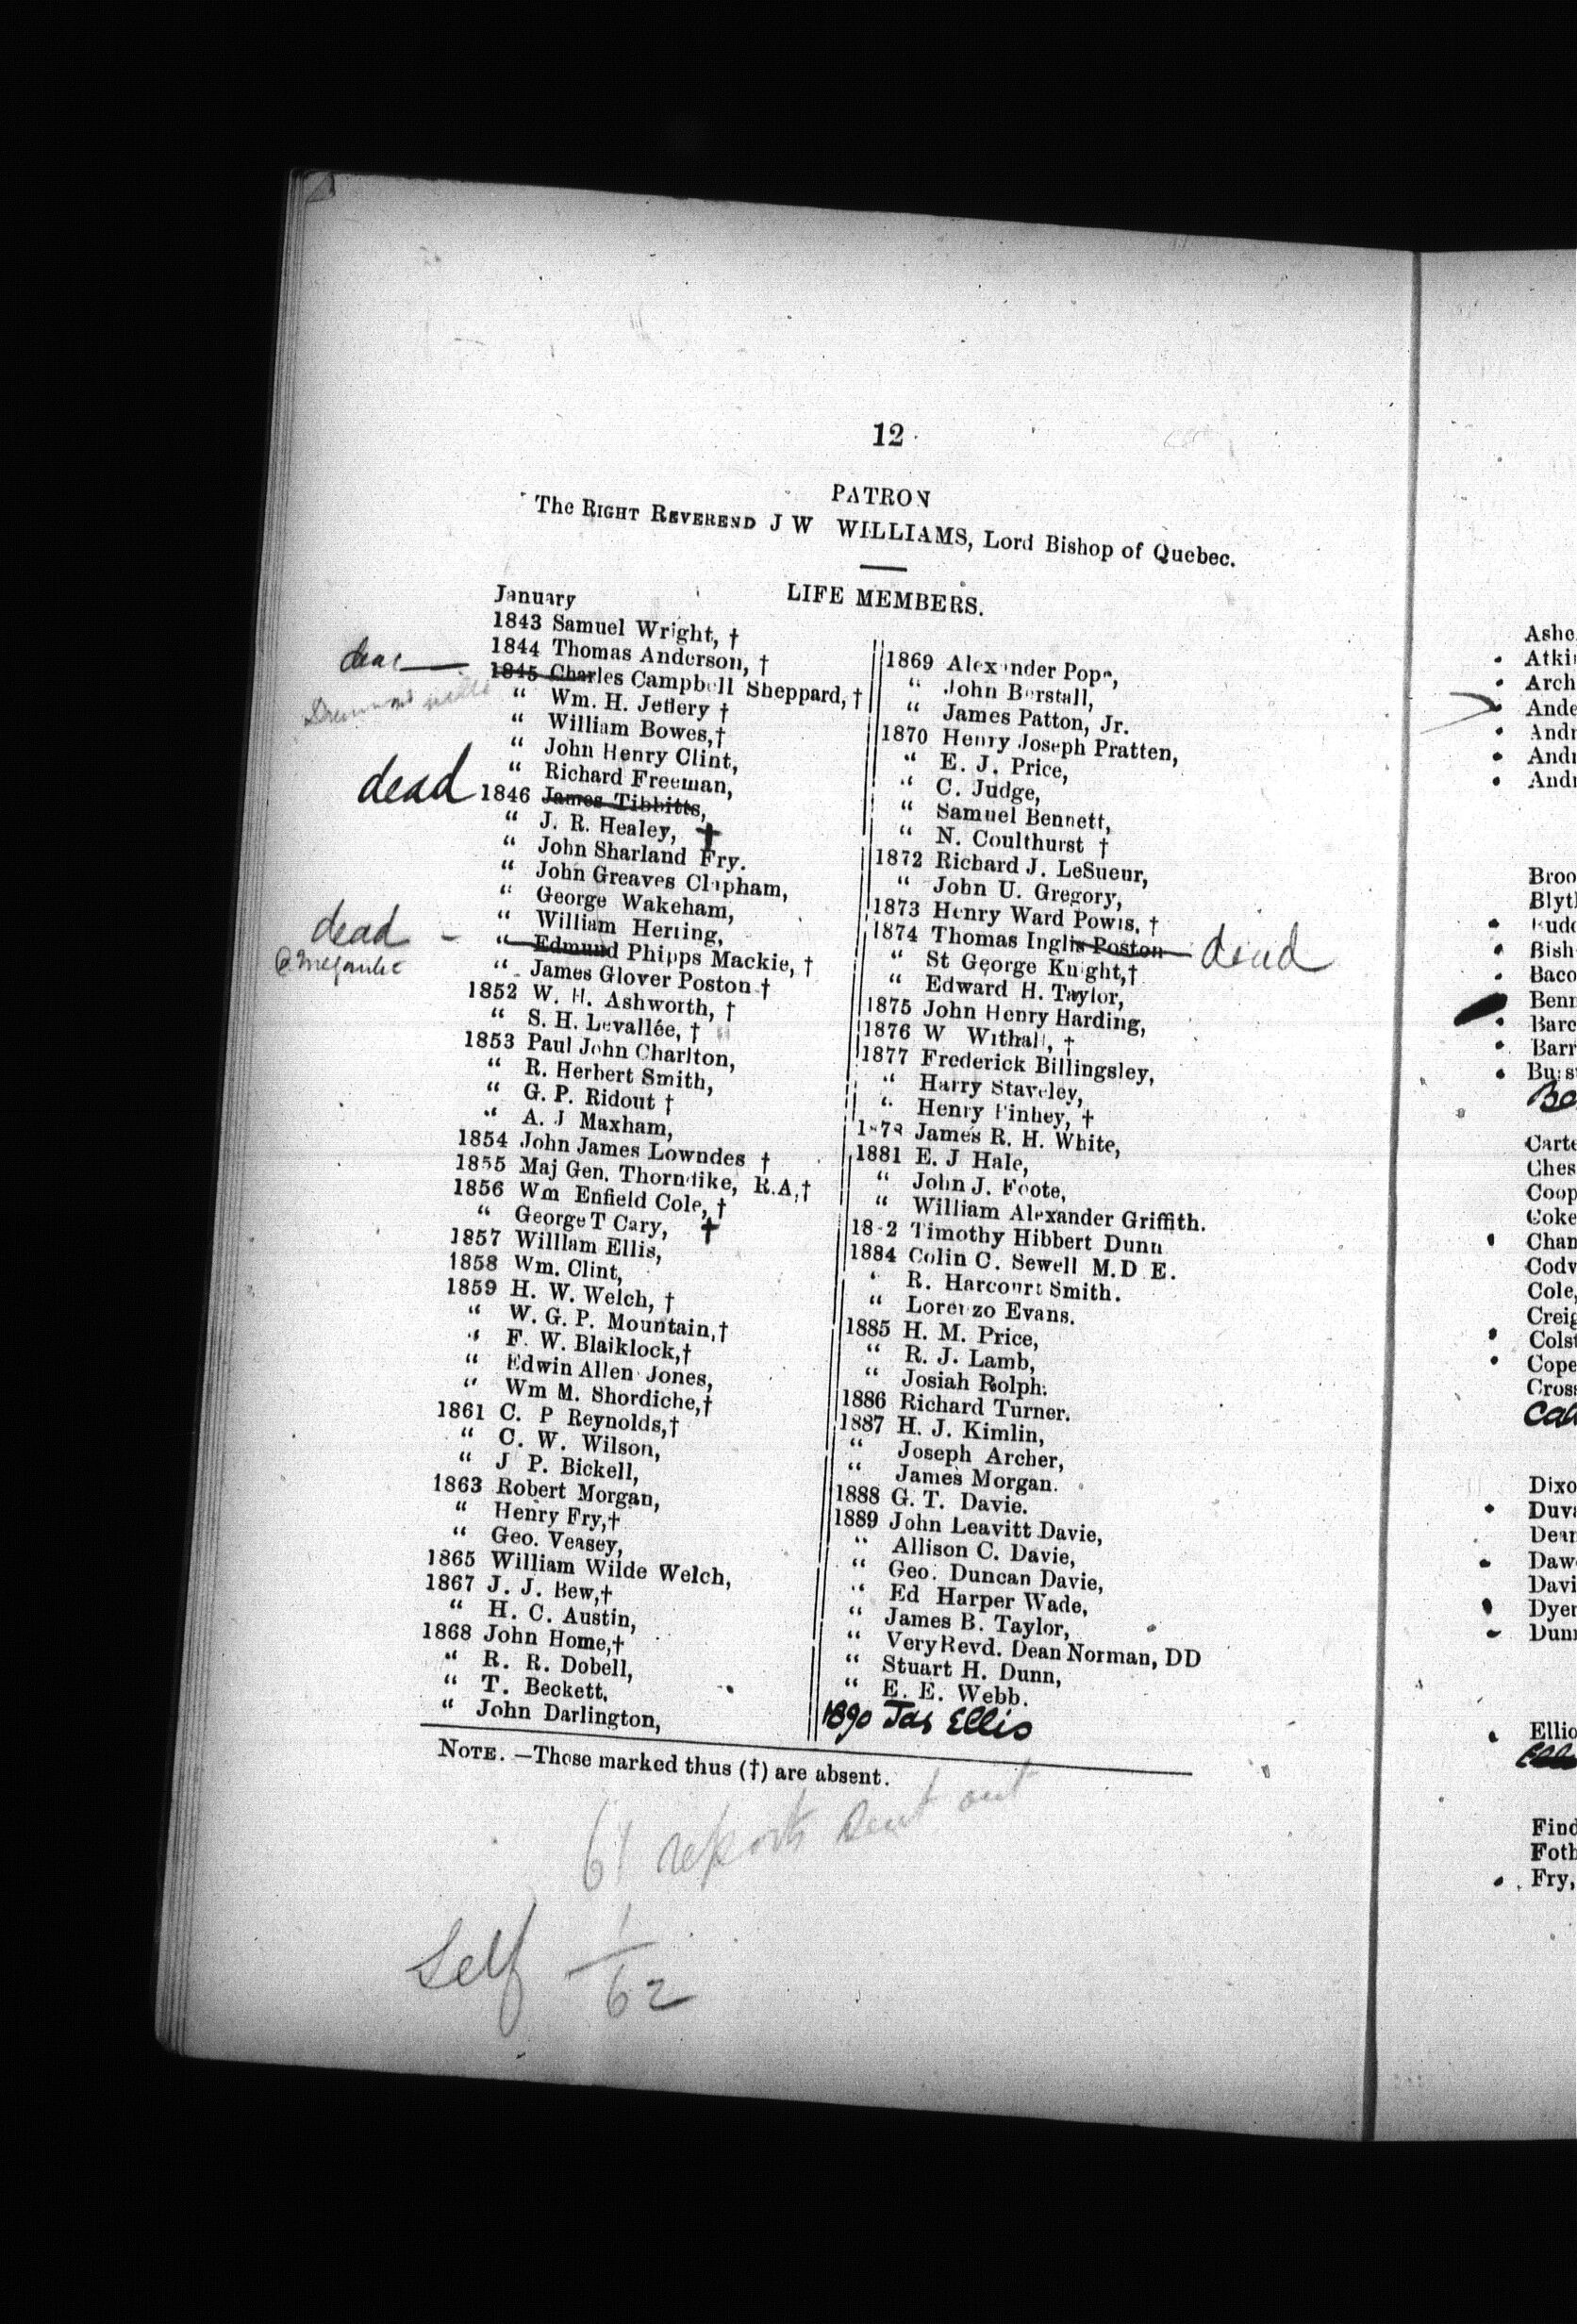 12
PATRON
The RIGHT REVEREND J W WILLIAMS, Lord Bishop of Quebec.
LIFE MEMBERS.
January
1843 Samuel Wright, †
1844 Thomas Anderson, †
1845 Charles Campbell Sheppard, †
“ Wm. H. Jeffery †
“ William Bowes,†
“ John Henry Clint,
“ Richard Freeman,
dead 1846 James Tibbitts,
“ J. R. Healey, †
“ John Sharland Fry.
“ John Greaves Clapham,
“ George Wakeham,
“ William Herring,
dead - “ Edmund Phipps Mackie, †
“ James Glover Poston †
1852 W. H. Ashworth, †
“ S. H. Levallée, †
1853 Paul John Charlton,
“ R. Herbert Smith,
“ G. P. Ridout †
“ A. J Maxham,
1854 John James Lowndes †
1855 Maj Gen. Thorndike, R.A,†
1856 Wm Enfield Cole, †
“ George T Cary, †
1857 Willlam Ellis,
1858 Wm. Clint,
1859 H. W. Welch, †
“ W. G. P. Mountain,†
“ F. W. Blaiklock,†
“ Edwin Allen Jones,
“ Wm M. Shordiche,†
1861 C. P Reynolds,†
“ C. W. Wilson,
“ J P. Bickell,
1863 Robert Morgan,
“ Henry Fry,†
“ Geo. Veasey,
1865 William Wilde Welch,
1867 J. J. Bew,†
“ H. C. Austin,
1868 John Home,†
“ R. R. Dobell,
“ T. Beckett,
“ John Darlington,
1869 Alexander Pope,
“ John Burstall,
“ James Patton, Jr.
1870 Henry Joseph Pratten,
“ E. J. Price,
“ C. Judge,
“ Samuel Bennett,
“ N. Coulthurst †
1872 Richard J. LeSueur,
“ John U. Gregory,
1873 Henry Ward Powis, †
1874 Thomas Inglis Poston dead
“ St George Knight,†
“ Edward H. Taylor,
1875 John Henry Harding,
1876 W Withall, †
1877 Frederick Billingsley,
“ Harry Staveley,
“ Henry Finhey, †
James R. H. White,
1881 E. J Hale,
“ John J. Foote,
“ William Alexander Griffith.
18-2 Timothy Hibbert Dunn
1884 Colin C. Sewell M.D E.
“ R. Harcourt Smith.
“ Lorenzo Evans.
1885 H. M. Price,
“ R. J. Lamb,
“ Josiah Rolph.
1886 Richard Turner.
1887 H. J. Kimlin,
“ Joseph Archer,
“ James Morgan.
1888 G. T. Davie.
1889 John Leavitt Davie,
“ Allison C. Davie,
“ Geo. Duncan Davie,
“ Ed Harper Wade,
“ James B. Taylor,
“ Very Revd. Dean Norman, DD
“ Stuart H. Dunn,
“ E. E. Webb.
1890 Jas Ellis
NOTE. —Those marked thus (†) are absent.
61 reports sent out
Self 1
62
Ashe
Atki
Arch
Ande
Andr
Andr
Andr
Broo
Blyt
Budd
Bish
Baco
Benn
Barc
Barr
Burs
Be
Carte
Ches
Coop
Coke
Chan
Codv
Cole,
Creig
Colst
Cope
Cross
Dixo
Duva
Dean
Daw
Davi
Dyer
Dunn
Ellio
Find
Foth
Fry,